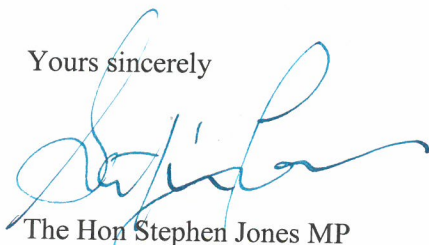 Yours sincerely
The Hon Stephen Jones MP